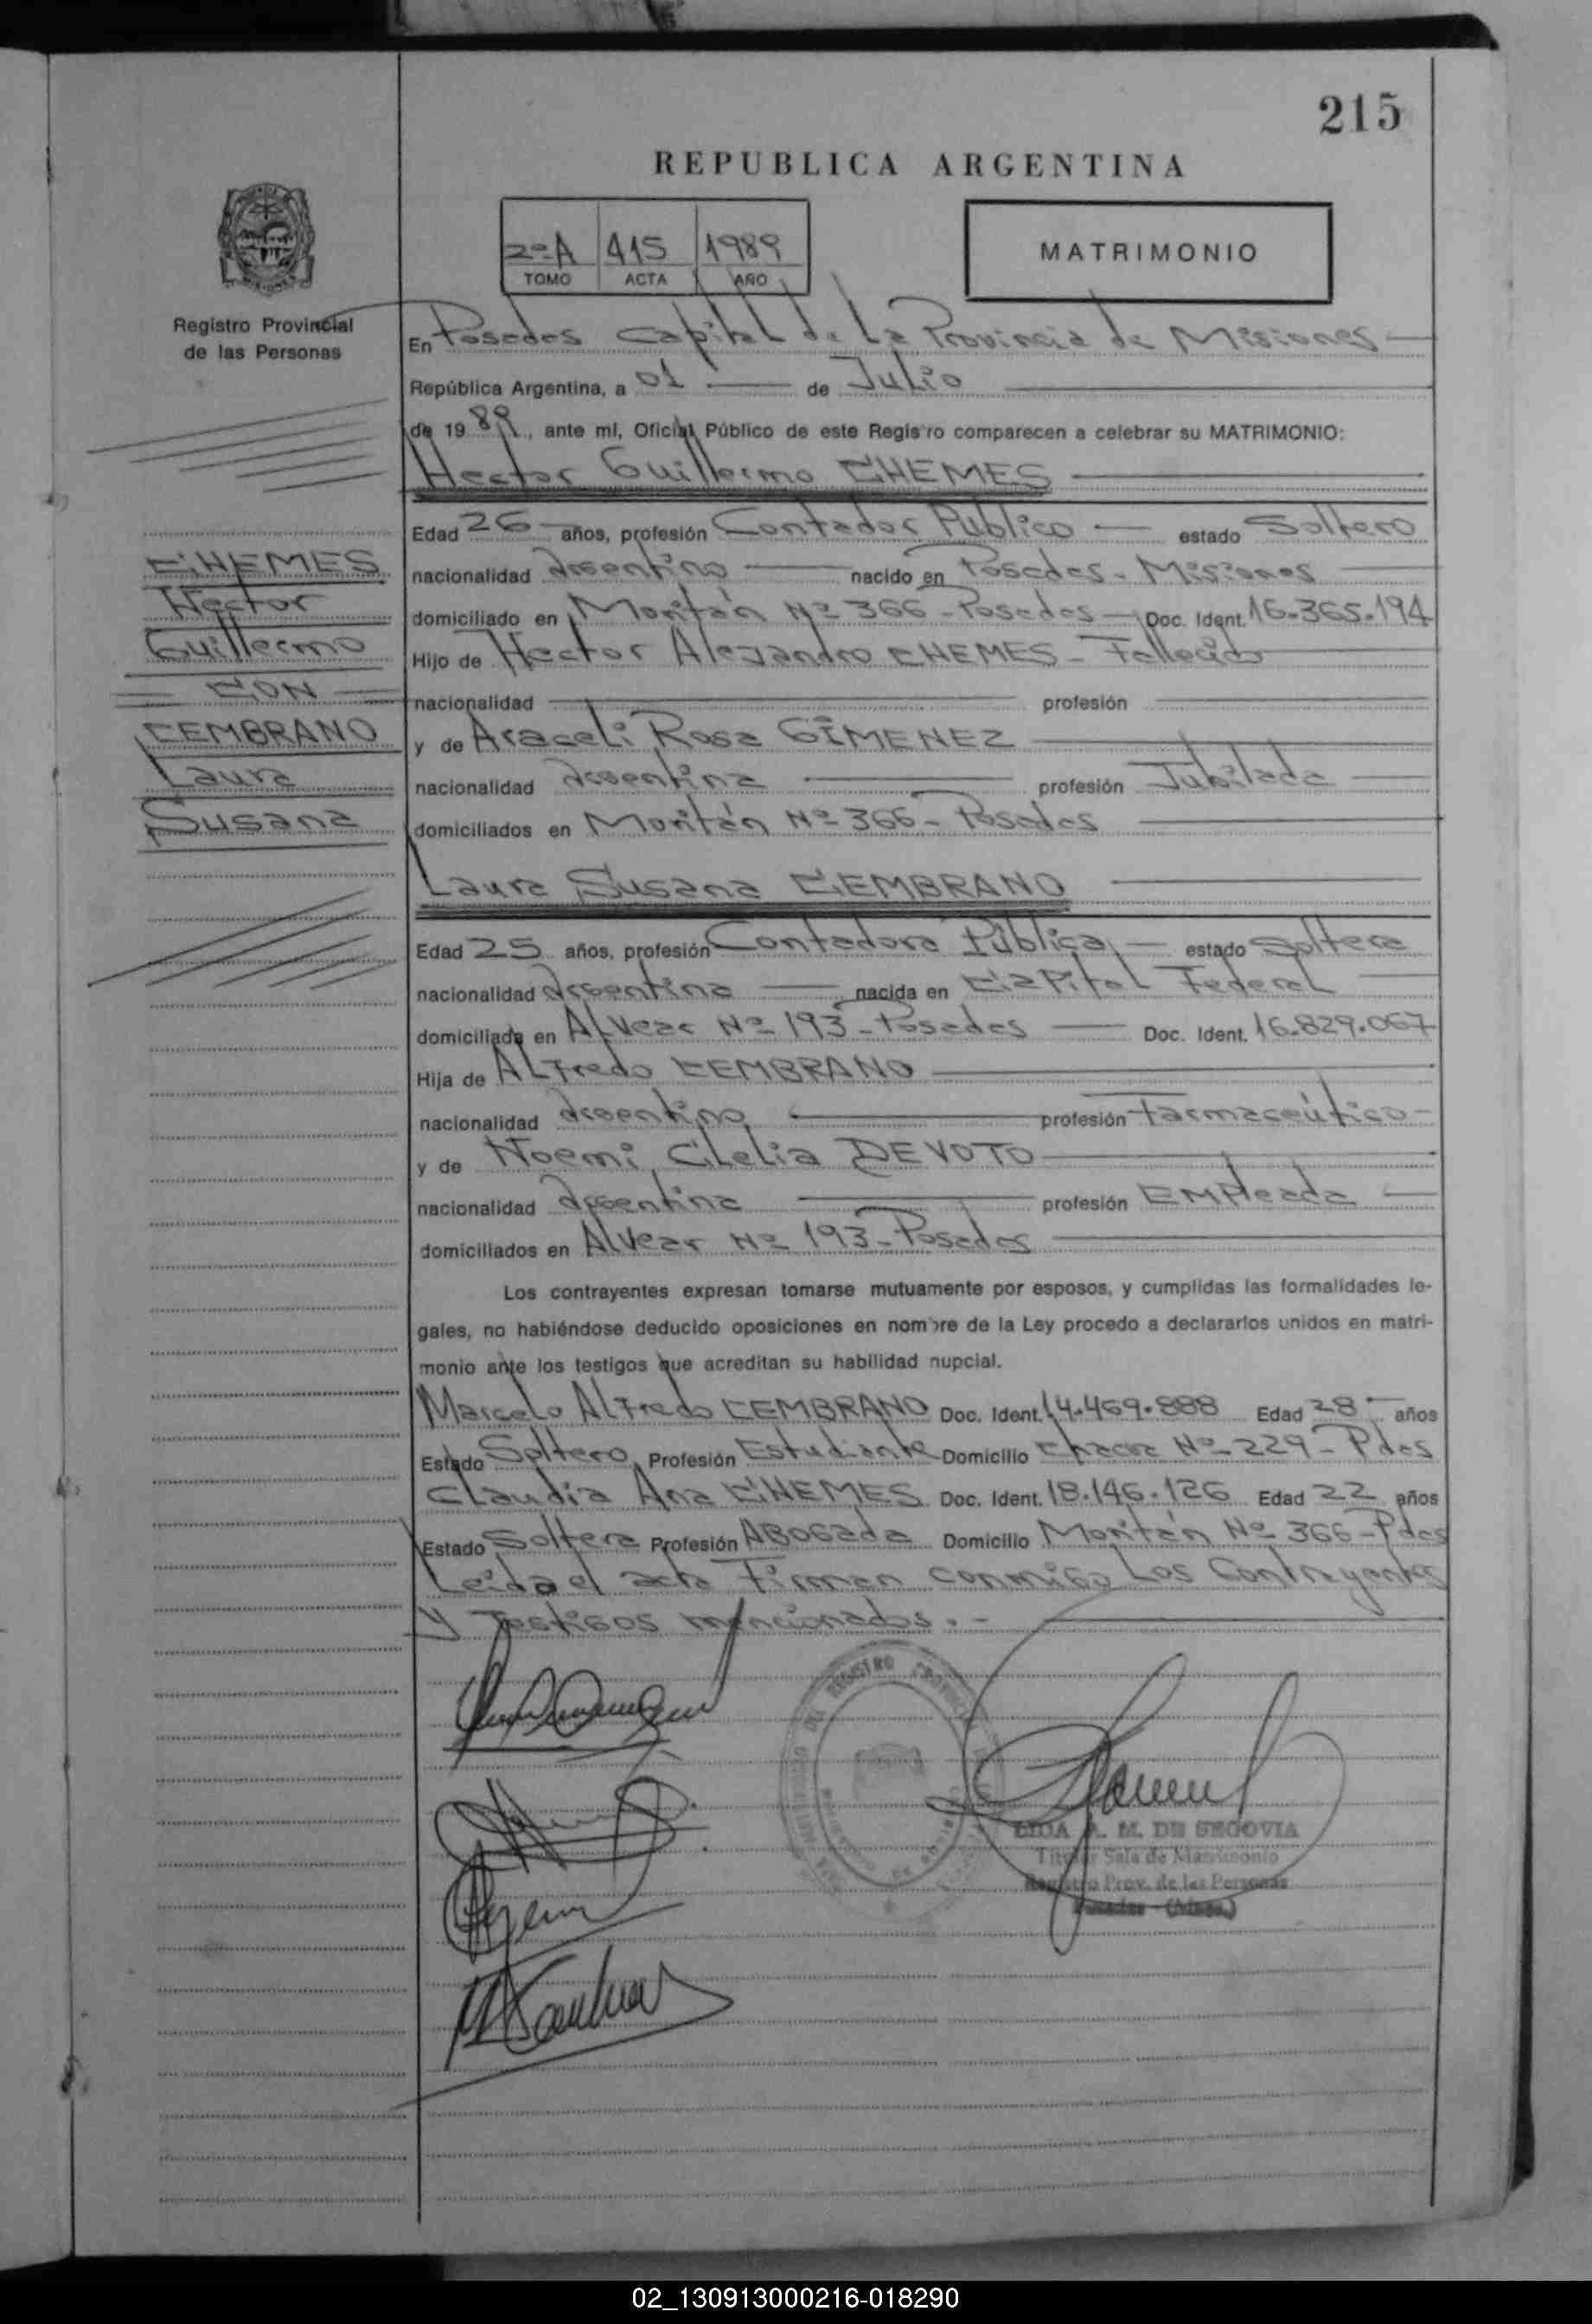 215
REPUBLICA ARGENTINA
2º A 415 1989
TOMO ACTA AÑO
MATRIMONIO
Registro Provincial
de las Personas
En Posadas Capital de La Provincia de Misiones
República Argentina, a 01 de Julio
de 1989, ante mí, Oficial Público de este Registro comparecen a celebrar su MATRIMONIO:
Hector Guillermo CHEMES
Edad 26 años, profesión Contador Público estado Soltero
nacionalidad Argentino nacido en Posadas - Misiones
domiciliado en Moritán Nº 366 - Posadas Doc. Ident. 16.365.194
Hijo de Hector Alejandro CHEMES - Fallecido
nacionalidad profesión
y de Araceli Rosa GIMENEZ
nacionalidad Argentina profesión Jubilada
domiciliados en Moritán Nº 366 - Posadas
CHEMES
Hector
Guillermo
CON
CEMBRANO
Laura
Susana
Laura Susana CEMBRANO
Edad 25 años, profesión Contadora Pública estado Soltera
nacionalidad Argentina nacida en Capital Federal
domiciliada en Alvear Nº 193 - Posadas Doc. Ident. 16.829.067
Hija de Alfredo CEMBRANO
nacionalidad Argentino profesión Farmaceútico
y de Noemi Clelia DEVOTO
nacionalidad Argentina profesión Empleada
domiciliados en Alvear Nº 193 - Posadas
Los contrayentes expresan tomarse mutuamente por esposos, y cumplidas las formalidades le-
gales, no habiéndose deducido oposiciones en nombre de la Ley procedo a declararlos unidos en matri-
monio ante los testigos que acreditan su habilidad nupcial.
Marcelo Alfredo CEMBRANO Doc. Ident. 14.469.888 Edad 28 años
Estado Soltero Profesión Estudiante Domicilio Chacra Nº 229 - Pdas
Claudia Ana CHEMES Doc. Ident. 18.146.126 Edad 22 años
Estado Soltera Profesión Abogada Domicilio Moritán Nº 366 - Pdas
Leida el acta Firman conmigo Los Contrayentes
y Testigos mencionados. -
LIDA A. M. DE SEGOVIA
Titular Sala de Matrimonio
Registro Prov. de las Personas
Posadas - (Mnes.)
02_130913000216-018290